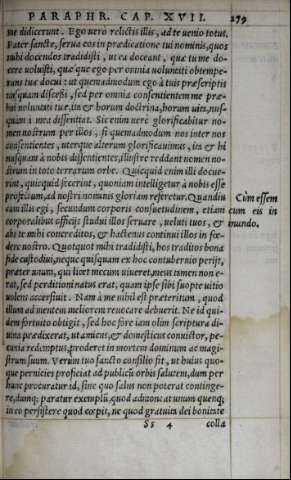 PARAPHR. CAP. XVII. 279
me didicerunt. Ego uerò relictis illis, ad te uenio totus.
Pater sancte, serua eos in prædicatione tui nominis, quos
mihi docendos tradidisti, ut ea doceant, quæ tu me do-
cere uoluisti, quæque ego per omnia uoluntati obtempe-
rans tuæ docui: ut quemadmodum ego à tuis præscriptis
nusquam discessi, sed per omnia consentientem me præ-
bui uoluntati tuæ, ita & horum doctrina, horum uita, nus-
quàm à mea dissentiat. Sic enim uerè glorificabitur no-
men nostrum per illos, si quemadmodum nos inter nos
consentientes, uterque alterum glorificauimus, ita & hi
nusquam à nobis dissentientes, illustre reddant nomen no-
strum in toto terrarum orbe. Quicquid enim illi docue-
rint, quicquid fecerint, quoniam intelligetur à nobis esse
profectum, ad nostri nominis gloriam referetur. Quandiu
eram illis egi, secundum corporis consuetudinem, etiam
corporalibus officijs studui illos seruare, ueluti tuos, &
abs te mihi concreditos, & hactenus continui illos in fœ-
dere nostro. Quotquot mihi tradidisti, hos traditos bona
fide custodiui, neque quisquam ex hoc contubernio perijt,
præter unum, qui licet mecum uiueret, meus tamen non e-
rat, sed perditioni natus erat, quam ipse sibi suopte uitio
uolens accersiuit. Nam à me nihil est præteritum, quod
illum ad mentem meliorem reuocare debuerit. Ne id qui-
dem fortuito obtigit, sed hoc fore iam olim scriptura di-
uina prædixerat, ut amicus, & domesticus conuictor, pe-
cunia redemptus, proderet in mortem dominum ac magi-
strum suum. Verùm tuo sancto consilio fit, ut huius quo-
que pernicies proficiat ad publicũ orbis salutem, dum per
hunc procuratur id, sine quo salus non poterat continge-
re, dumq; paratur exemplũ, quod admoneat unum quenq;
in eo persistere quod cœpit, ne quod gratuita dei bonitate
Ss 4 colla
Cùm essem
cum eis in
mundo.